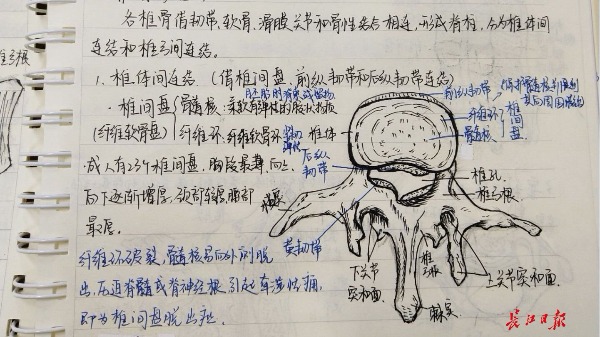 各椎骨借韧带、软骨、滑膜关节和骨性结合相连,形成脊柱,分为椎体间
连结和椎弓间连结。
1. 椎体间连结 (借椎间盘、前纵韧带和后纵韧带连结)
·椎间盘
(纤维软骨盘)
髓核:柔软富弹性的胶状物质
胚胎时脊索残留物
纤维环:纤维软骨环
椎体
成人有23个椎间盘,胸段最薄,向上
向下逐渐增厚,颈部较厚,腰部
最厚。
纤维环破裂,髓核易向外侧脱
出,压迫脊髓或脊神经根引起牵涉性痛,
即为椎间盘脱出症。
前纵韧带
纤维环
髓核
椎间盘
后纵韧带
椎孔
椎弓根
横突
黄韧带
下关节突和面
椎弓板
棘突
上关节突和面
椎弓根
长江日报